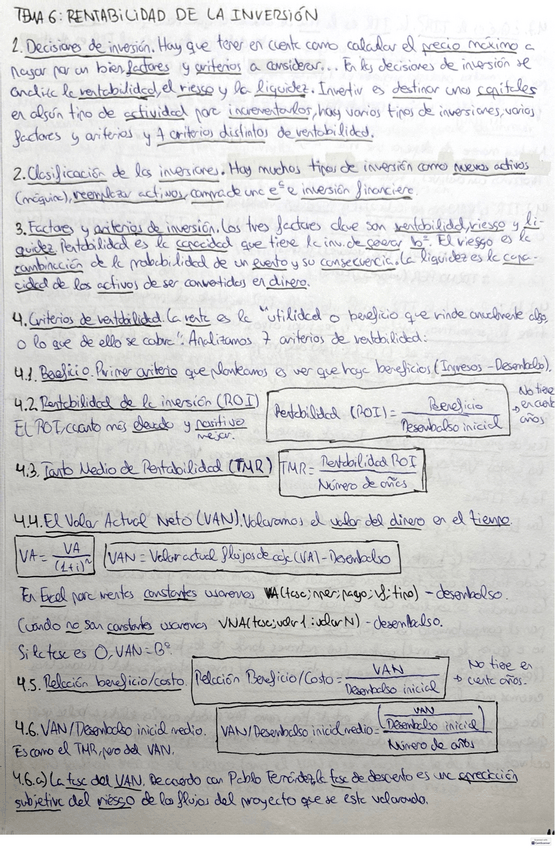 TEMA 6: RENTABILIDAD DE LA INVERSIÓN
1. Decisiones de inversión. Hay que tener en cuenta como calcular el precio máximo a
pagar por un bien, factores y criterios a considerar... En las decisiones de inversión se
analiza la rentabilidad, el riesgo y la liquidez. Invertir es destinar unos capitales
en algún tipo de actividad para incrementarlos, hay varios tipos de inversiones, varios
factores y criterios y 7 criterios distintos de rentabilidad.
2. Clasificación de las inversiones. Hay muchos tipos de inversión como nuevos activos
(máquina), reemplazar activos, compra de una eª e inversión financiera.
3. Factores y criterios de inversión. Los tres factores clave son rentabilidad, riesgo y li-
quidez. Rentabilidad es la capacidad que tiene la inv. de generar bº. El riesgo es la
combinación de la probabilidad de un evento y su consecuencia. La liquidez es la capa-
cidad de los activos de ser convertidos en dinero.
4. Criterios de rentabilidad. La renta es la "utilidad o beneficio que rinde anualmente algo
o lo que de ello se cobra". Analizamos 7 criterios de rentabilidad:
4.1. Beneficio. Primer criterio que planteamos es ver que haya beneficios (Ingresos - Desembolso).
4.2. Rentabilidad de la inversión (ROI)
El ROI, cuanto más elevado y positivo
mejor.
Rentabilidad (ROI) = Beneficio / Desembolso inicial
→ No tiene
en cuenta
años
4.3. Tanto Medio de Rentabilidad (TMR)
TMR = Rentabilidad ROI / Número de años
4.4. El Valor Actual Neto (VAN). Valoramos el valor del dinero en el tiempo.
VA = VA / (1+i)ⁿ
VAN = Valor actual flujos de caja (VA) - Desembolso
En Excel para rentas constantes usaremos VA(tasa; nper; pago; vf; tipo) - desembolso.
Cuando no son constantes usaremos VNA(tasa; valor 1: valor N) - desembolso.
Si la tasa es 0, VAN = Bº
4.5. Relación beneficio/costo
Relación Beneficio/Costo = VAN / Desembolso inicial
→ No tiene en
cuenta años.
4.6. VAN/Desembolso inicial medio.
Es como el TMR, pero del VAN.
VAN/Desembolso inicial medio = (VAN / Desembolso inicial) / Número de años
4.6.a) La tasa del VAN. De acuerdo con Pablo Fernández la tasa de descuento es una apreciación
subjetiva del riesgo de los flujos del proyecto que se esta valorando.